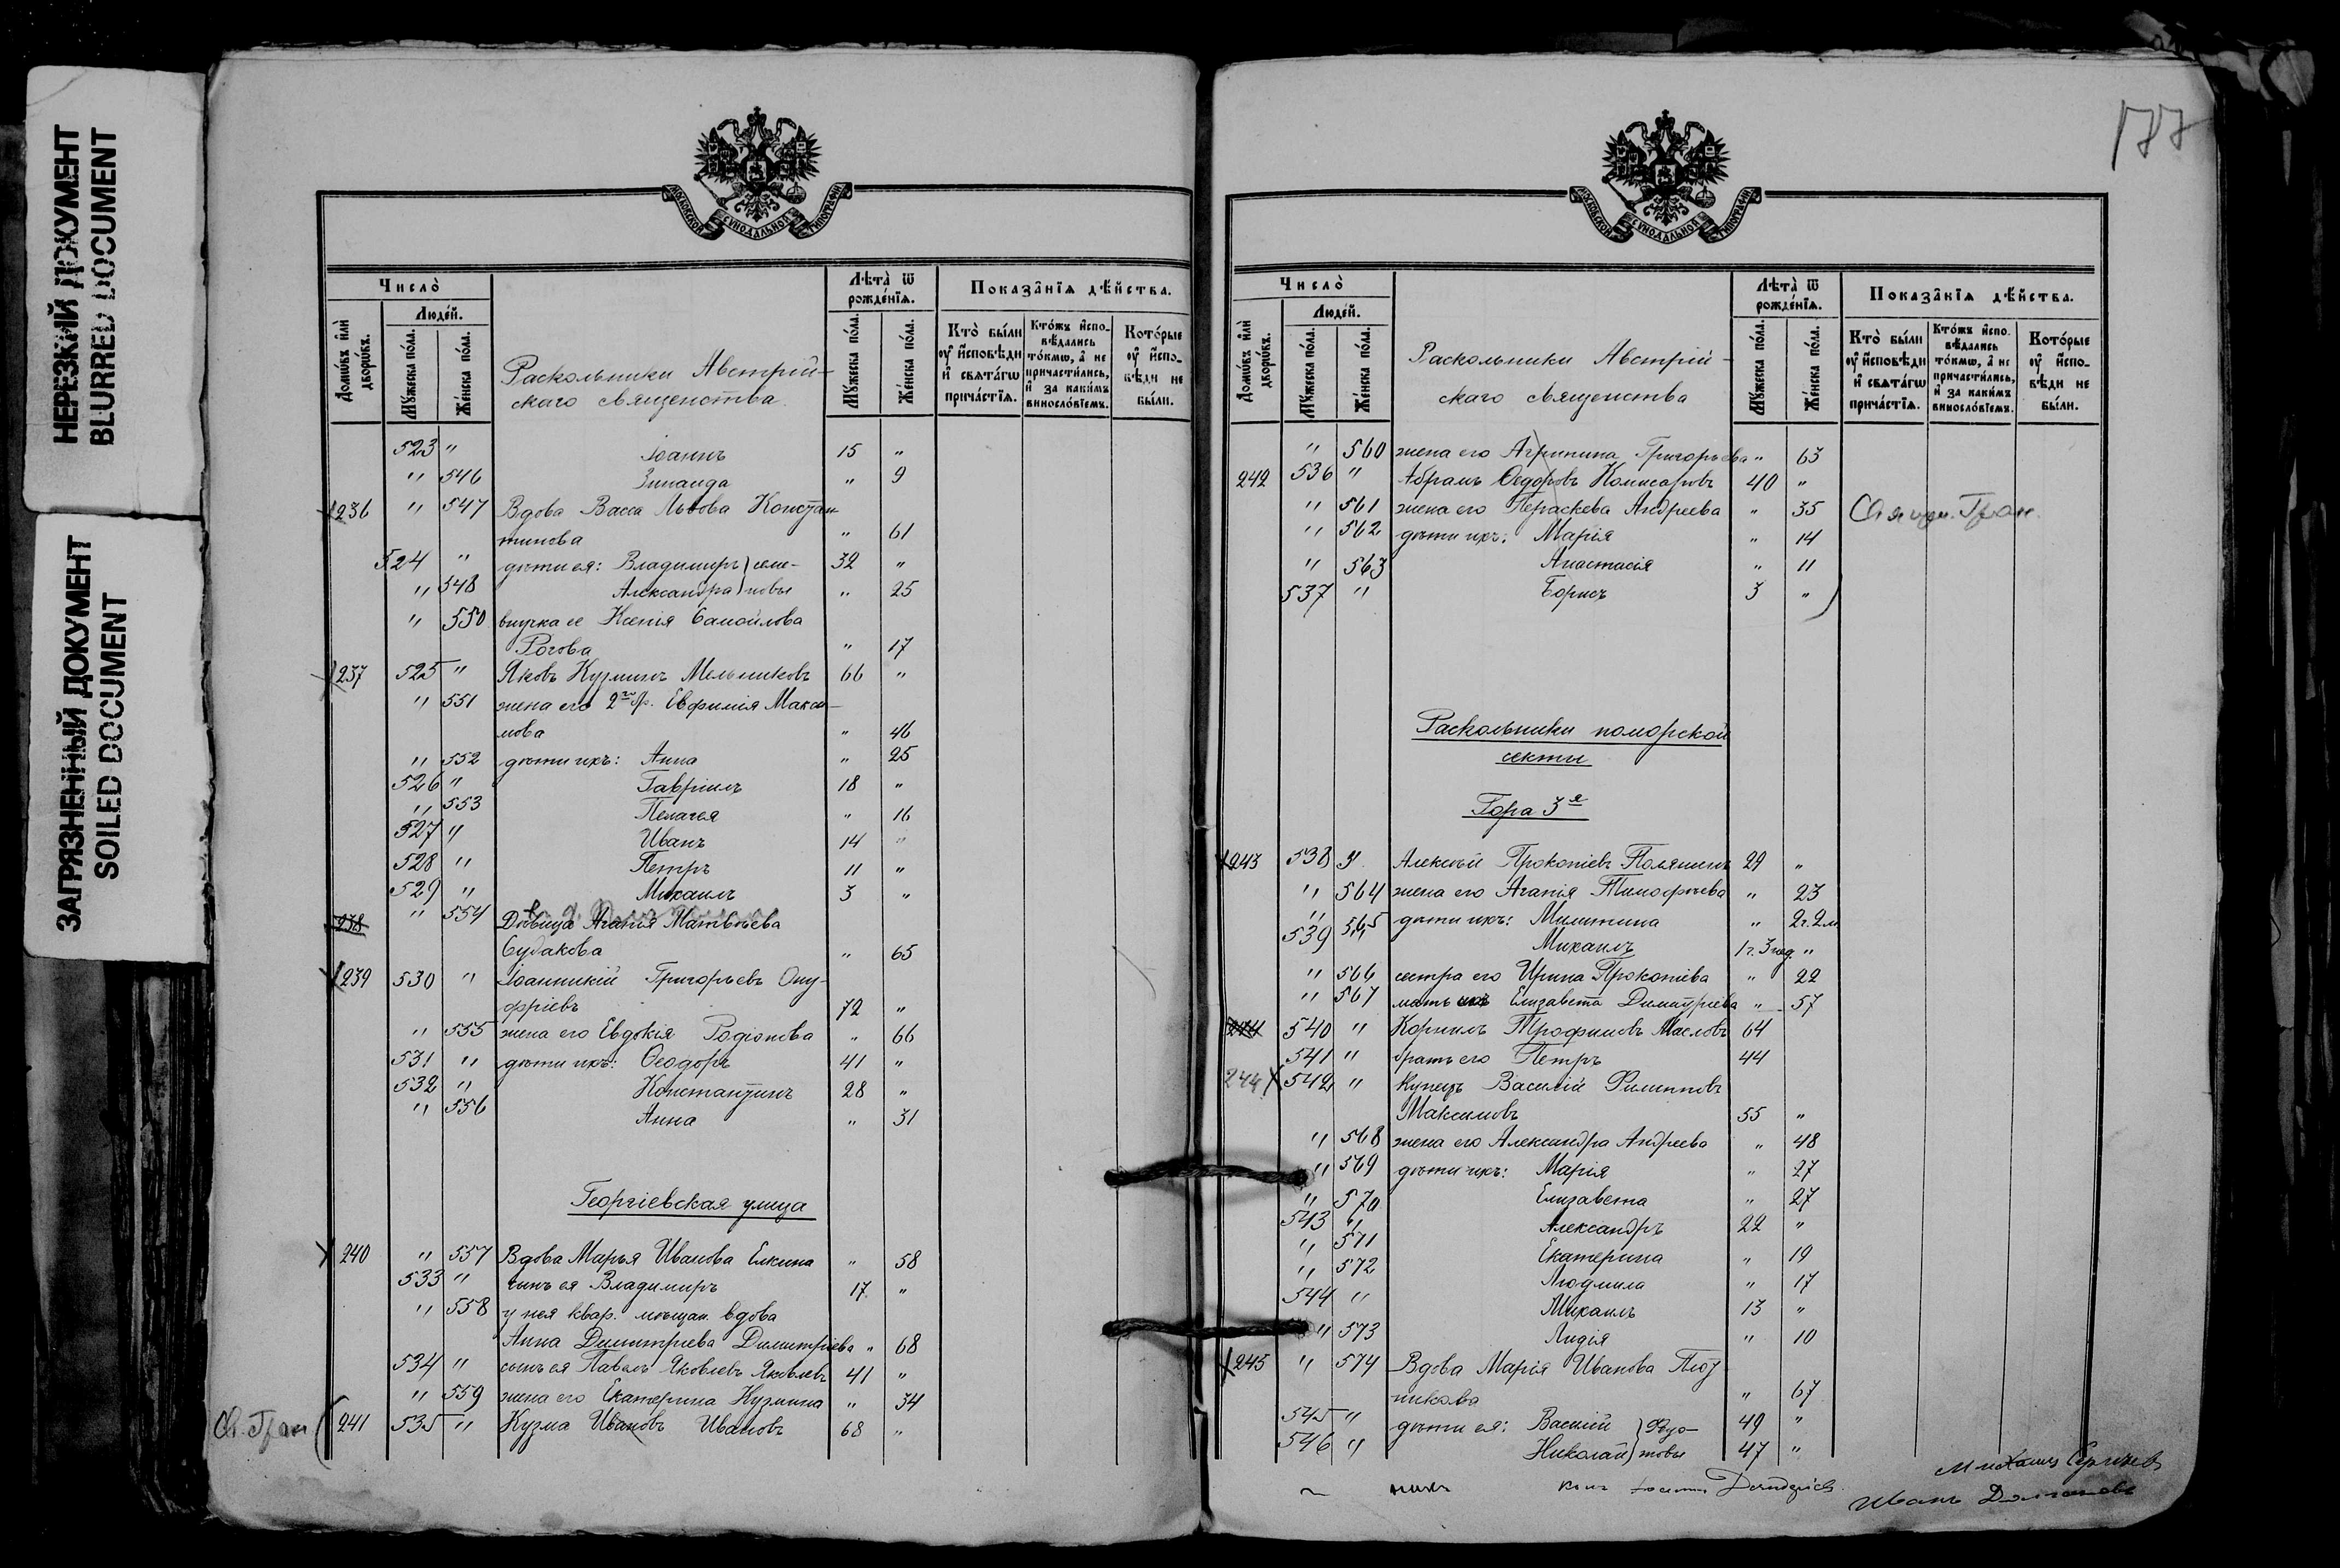 НЕРЕЗКИЙ ДОКУМЕНТ
BLURRED DOCUMENT
ЗАГРЯЗНЕННЫЙ ДОКУМЕНТ
SOILED DOCUMENT
МОСКОВСКОЙ СѴНОДАЛЬНОЙ ТИПОГРАФІИ
Число̀
Люде́й.
Домѡ́въ и҆лѝ дворѡ́въ.
Мꙋ́жеска по́ла.
Же́нска по́ла.
Раскольники Австрій-
скаго священства
Лѣ́та ѿ рожде́нїѧ.
Мꙋ́жеска по́ла.
Же́нска по́ла.
Показа̑нїѧ дѣ́йства.
Кто̀ бы́ли ᲂу҆ и҆сповѣ́ди и҆ свѧта́гѡ прича́стїѧ.
Кто́жъ и҆спо-вѣ́дались то́кмѡ, а҆ не причасти́лись, и҆ за каки́мъ винословїемъ.
Кото́рые ᲂу҆ и҆спо-вѣ́ди не бы́ли.
523 " Іоаннъ 15 "
" 546 Зинаида " 9
236 " 547 Вдова Васса Львова Констан-
тинова " 61
524 " дѣти ея: Владимиръ } семе- 32 "
" 548 Александра } новы " 25
" 550 внучка ее Ксенія Самойлова
Рогова " 17
237 525 " Яковъ Кузминъ Мельниковъ 66 "
" 551 жена его 2го бр. Евфимія Макси-
мова " 46
" 552 дѣти ихъ: Анна " 25
526 " Гавріилъ 18 "
" 553 Пелагея " 16
527 " Иванъ 14 "
528 " Петръ 11 "
529 " Михаилъ 3 "
238 " 554 Дѣвица Агапія Матвѣева
Судакова " 65
239 530 " Іоанникій Григорьевъ Ону-
фріевъ 72 "
" 555 жена его Евдокія Родіонова " 66
531 " дѣти ихъ: Ѳеодоръ 41 "
532 " Константинъ 28 "
" 556 Анна " 31
Георгіевская улица
240 " 557 Вдова Марья Иванова Елкина " 58
533 " сынъ ея Владимиръ 17 "
" 558 у нея квар. мѣщан. вдова
Анна Димитриева Димитріева " 68
534 " сынъ ея Павелъ Яковлевъ Яковлевъ 41 "
" 559 жена его Екатерина Кузмина " 34
Св. Гран 241 535 " Кузма Ивановъ Ивановъ 68 "
177
МОСКОВСКОЙ СѴНОДАЛЬНОЙ ТИПОГРАФІИ
Число̀
Люде́й.
Домѡ́въ и҆лѝ дворѡ́въ.
Мꙋ́жеска по́ла.
Же́нска по́ла.
Раскольники Австрій-
скаго священства
Лѣ́та ѿ рожде́нїѧ.
Мꙋ́жеска по́ла.
Же́нска по́ла.
Показа̑нїѧ дѣ́йства.
Кто̀ бы́ли ᲂу҆ и҆сповѣ́ди и҆ свѧта́гѡ прича́стїѧ.
Кто́жъ и҆спо-вѣ́дались то́кмѡ, а҆ не причасти́лись, и҆ за каки́мъ винословїемъ.
Кото́рые ᲂу҆ и҆спо-вѣ́ди не бы́ли.
" 560 жена его Агрипина Григорьева " 63
242 536 " Абрамъ Ѳедоровъ Комисаровъ 40 "
" 561 жена его Пераскева Андреева " 35
" 562 дѣти ихъ: Марія " 14
" 563 Анастасія " 11
537 " Борисъ 3 "
Раскольники поморской
секты
Гора 3я
243 538 " Алексѣй Прокопіевъ Полянинъ 29 "
" 564 жена его Агапія Тимофѣева " 23
" 565 дѣти ихъ: Милитина " 2г.2м
539 " Михаилъ 1г.3нед. "
" 566 сестра его Ирина Прокопіева " 22
" 567 мать ихъ Елизавета Димитріева " 57
244 540 " Корнилъ Трофимовъ Масловъ 64
541 " братъ его Петръ 44
244 542 " Купецъ Василій Филипповъ
Максимовъ 55 "
" 568 жена его Александра Андреева " 48
" 569 дѣти ихъ: Марія " 27
" 570 Елизавета " 27
543 " Александръ 22 "
" 571 Екатерина " 19
" 572 Людмила " 17
544 " Михаилъ 13 "
" 573 Лидія " 10
245 " 574 Вдова Марія Иванова Плот-
никова " 67
545 " дѣти ея: Василій } Ѳедо- 49 "
546 " Николай } товы 47 "
Иванъ